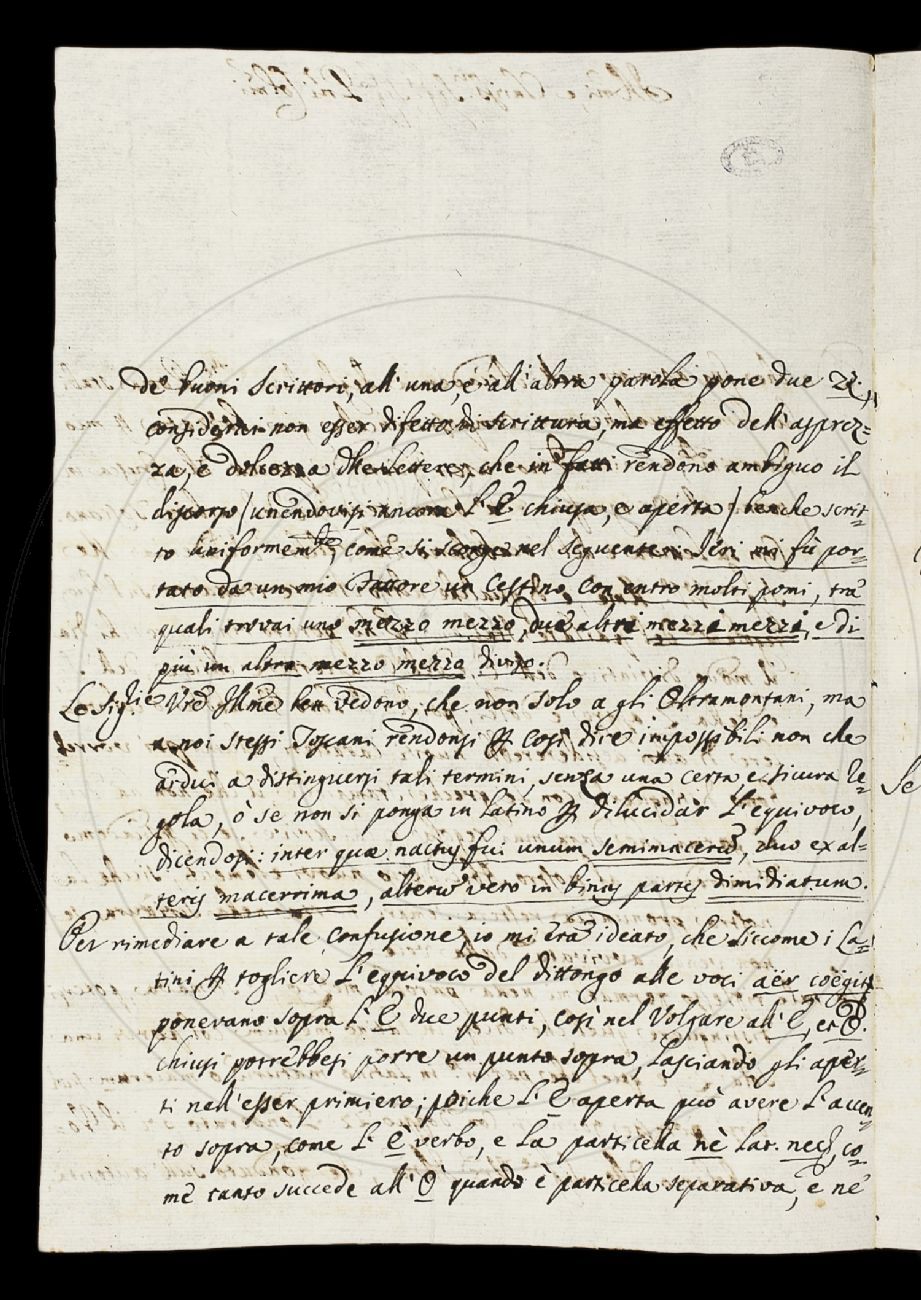 de' buoni Scrittori, all' una, e all' altra parola pone due ZZ.,
non esser difetto di scrittura, ma effetto dell' asprez=
za, e dolcezza dlle Lettere, che in fatti rendono ambiguo il
discorso / unendovisi ancora l' E chiusa, e aperta / benche scrit=
to uniformemte, come si scorge nel seguente: Ieri mi fù por=
tato da un mio Fattore un Cestino con entro molti pomi, trà
quali trovai uno mezzo mezzo, due altri mezzi mezzi, e di
più un altro mezzo mezzo diviso.
Le Sigie Vre Illme ben vedono, che non solo a gli Oltramontani, ma
a noi stessi Toscani rendonsi p così dire impossibili non che
ardui a distinguersi tali termini, senza una certa e sicura re=
gola, ò se non si ponga in latino p dilucidar l' equivoco,
dicendosi: inter quæ nactus fui unum semimacerū, duo ex al=
teris macerrima, alterū vero in binas partes dimidiatum.
Per rimediare a tale confusione, io mi era ideato, che siccome i La=
tini p togliere l' equivoco del dittongo alle voci aër coëgit
ponevano sopra l' E due punti, così nel Volgare all' E, et O
chiusi potrebbesi porre un punto sopra, lasciando gli aper=
ti nell' esser primiero; poiche l' E aperta può avere l' accen=
to sopra, come l' È verbo, e la particella nè lat. nec, co=
me tanto succede all' O quando è particella separativa, e ne'
Se